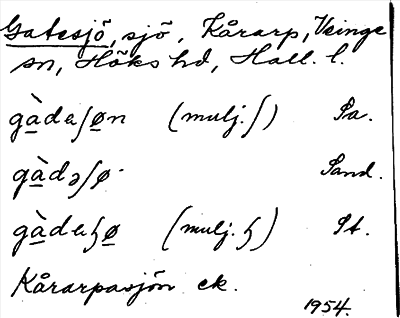 Gatesjö, sjö, Kårarp, Veinge
sn, Höks hd, Hall. l.
gàdeʃøn (mulj. ʃ) Pa.
gàdəʃø· Sand.
gàdeɧø (mulj. ɧ) St.
Kårarpasjön ek.
1954.